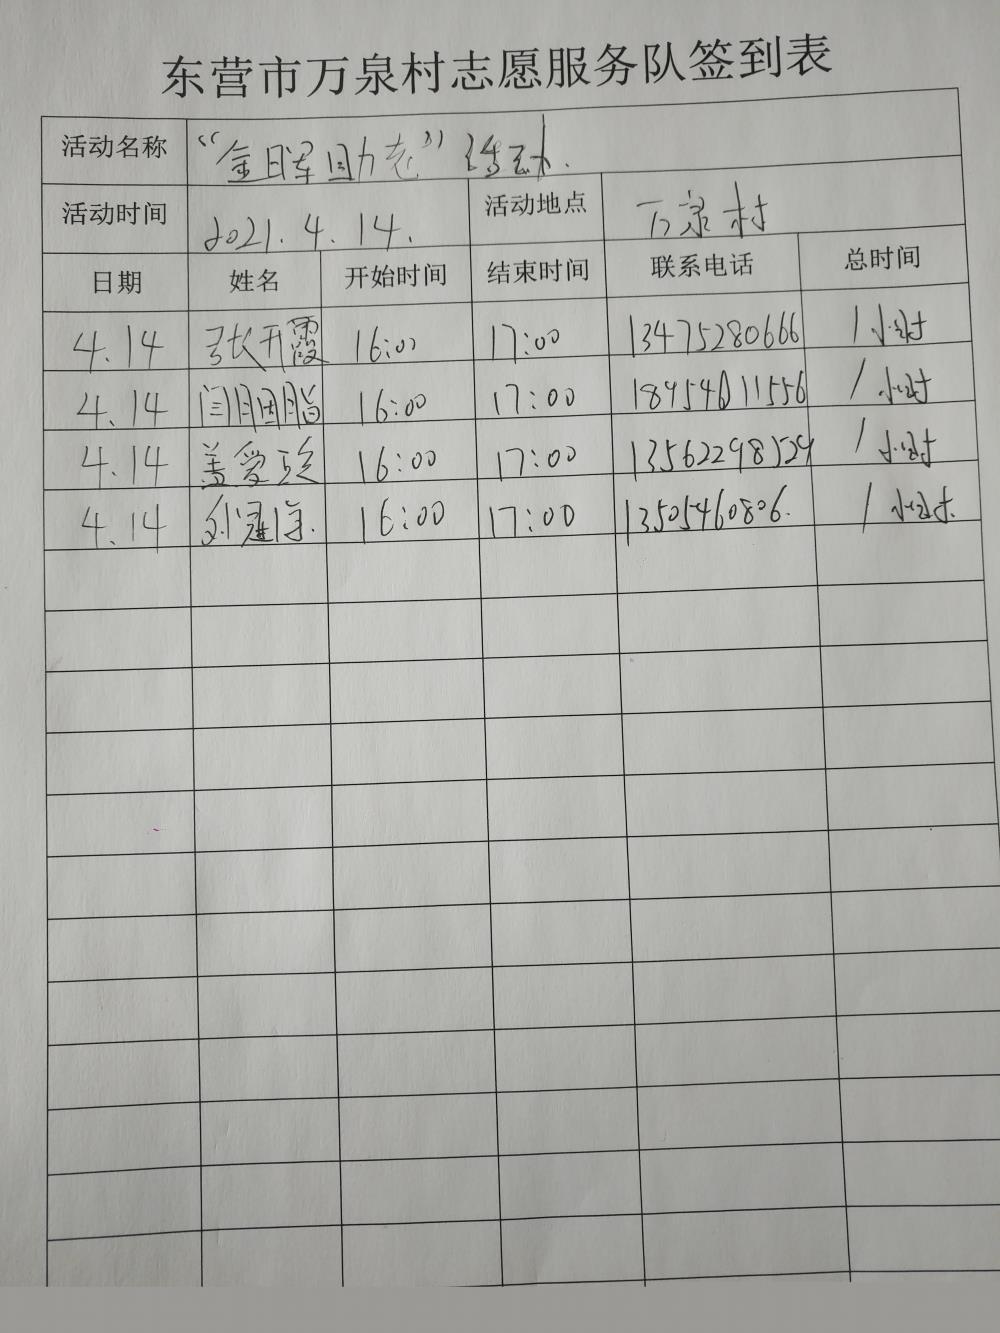 东营市万泉村志愿服务队签到表
活动名称 “金晖助老”活动.
活动时间 2021.4.14. 活动地点 万泉村
日期 姓名 开始时间 结束时间 联系电话 总时间
4.14 张开霞 16:00 17:00 13475280666 1小时
4.14 16:00 17:00 18954611556 1小时
4.14 盖爱珍 16:00 17:00 13562298529 1小时
4.14 16:00 17:00 13505460806. 1小时.